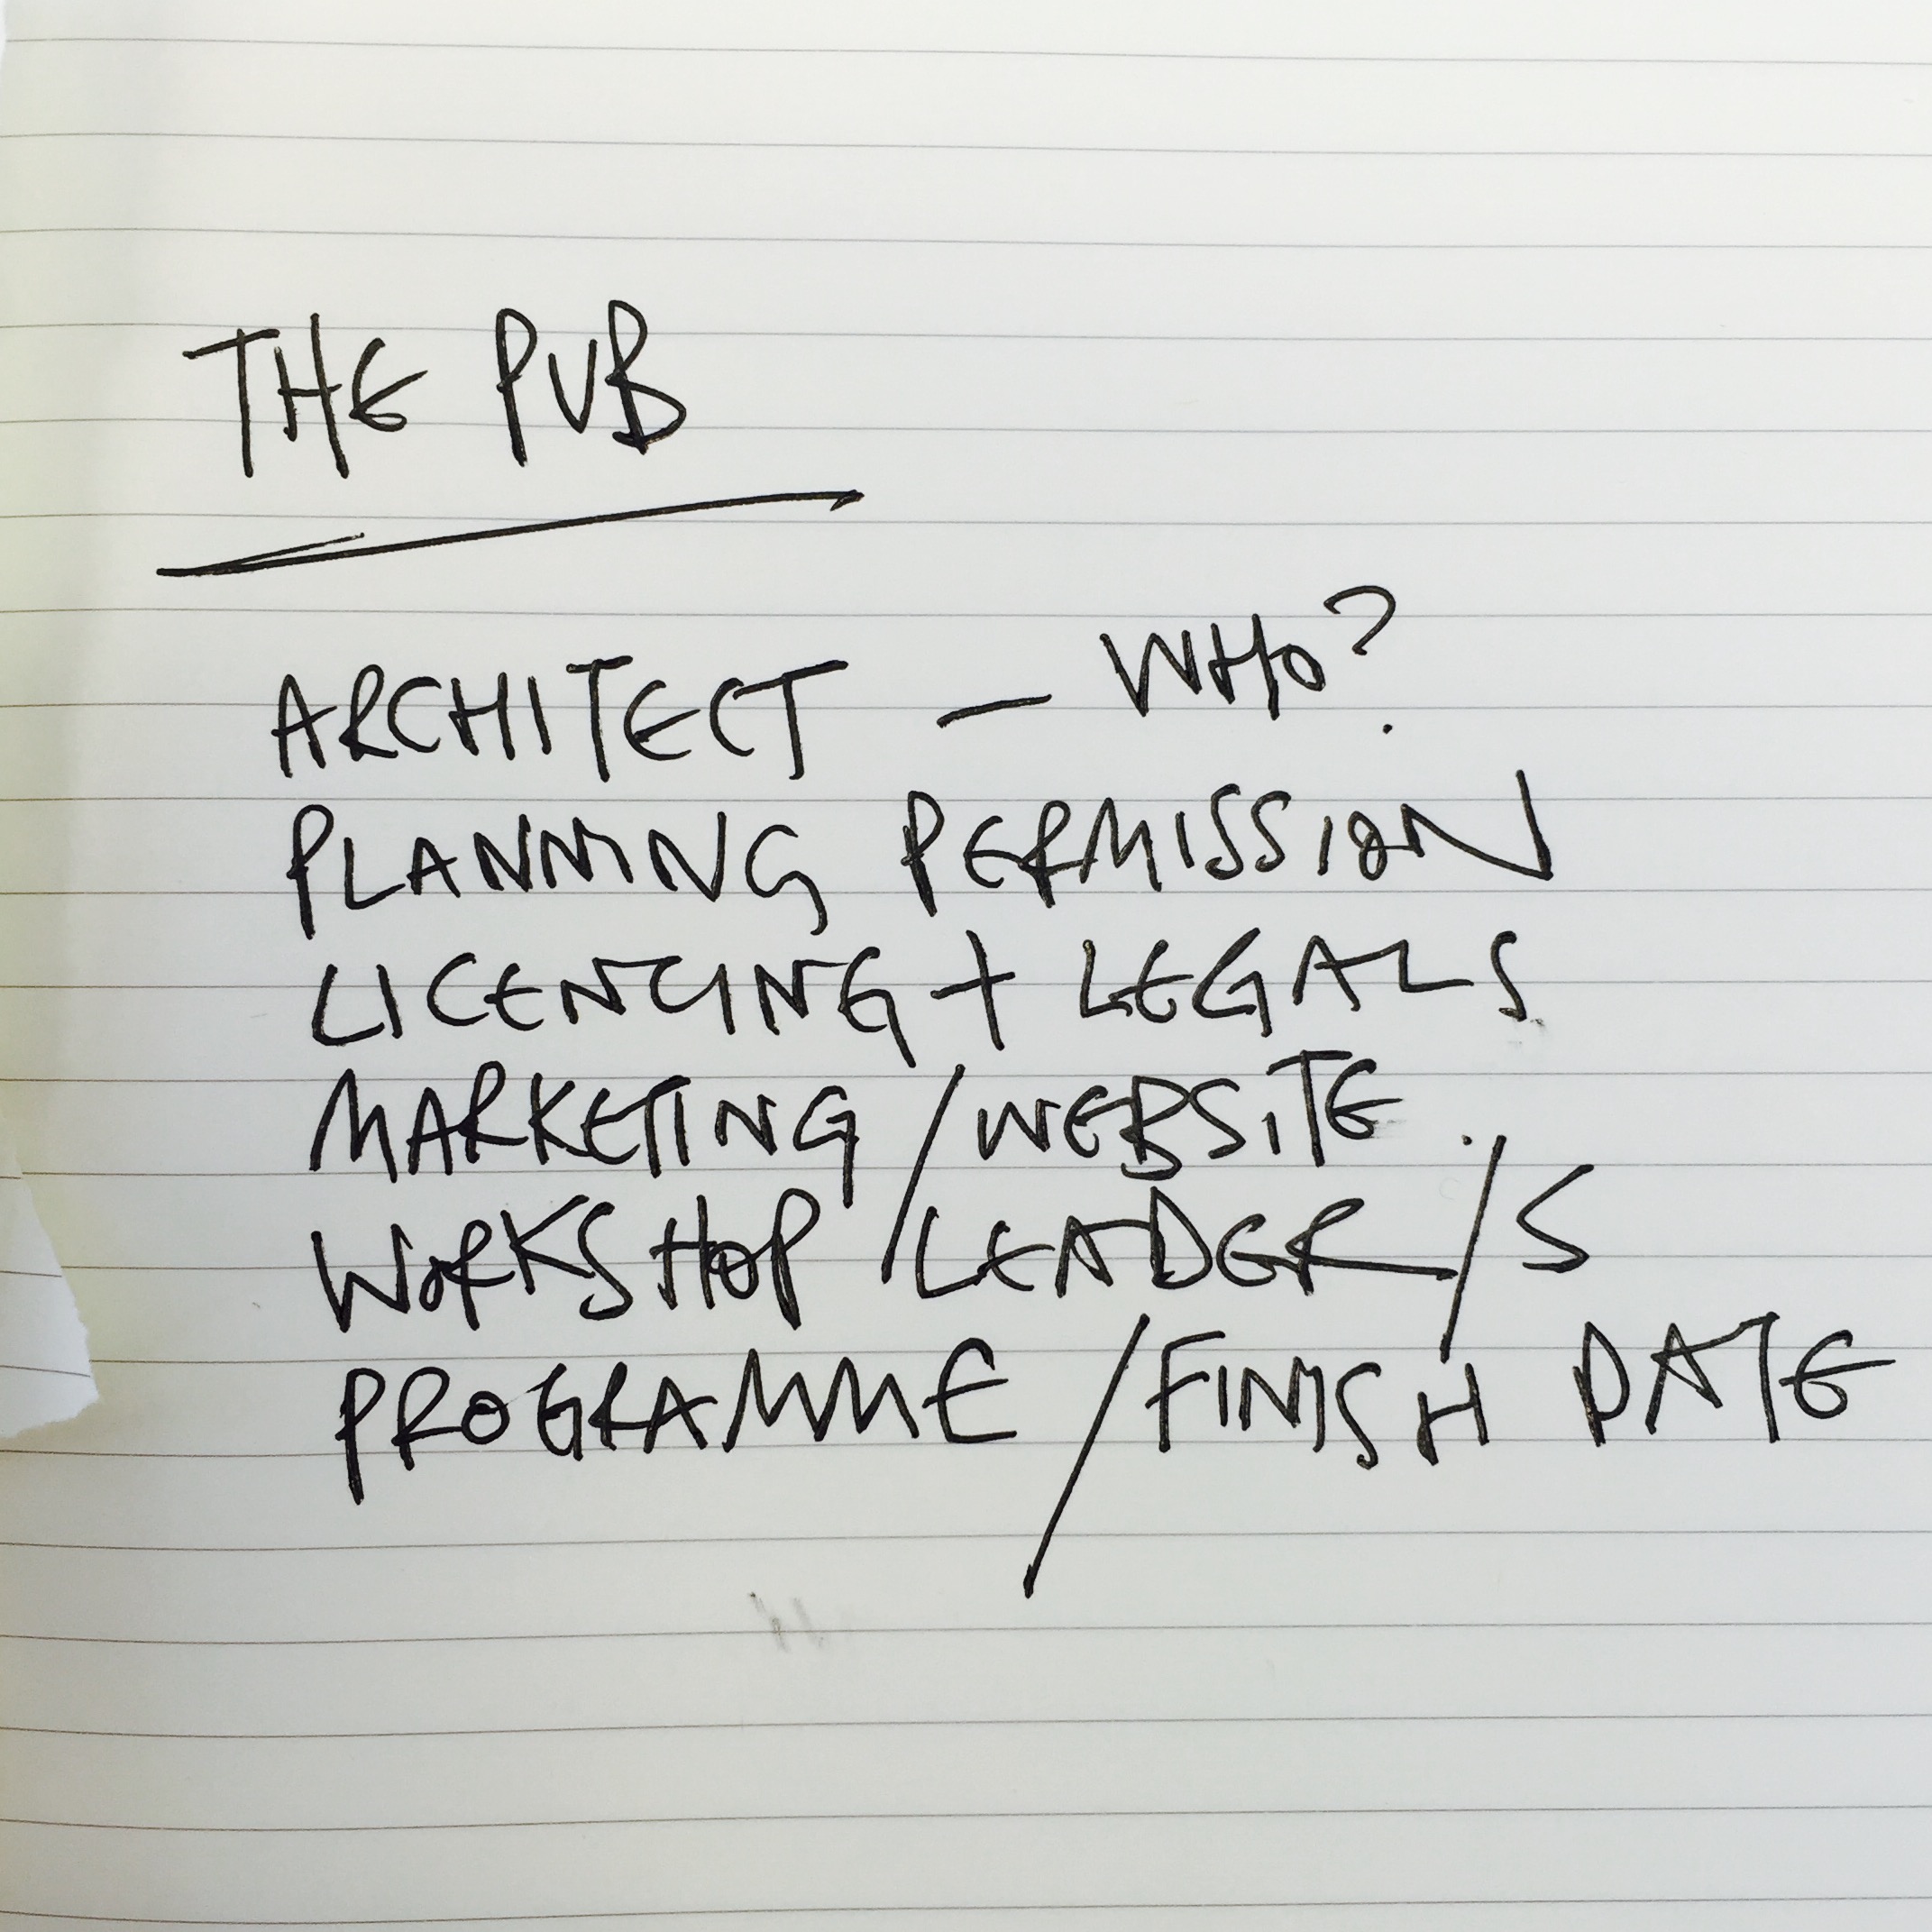 THE PUB
ARCHITECT — WHO?
PLANNING PERMISSION
LICENCING + LEGALS
MARKETING / WEBSITE
WORKSHOP / LEADER/S
PROGRAMME / FINISH DATE